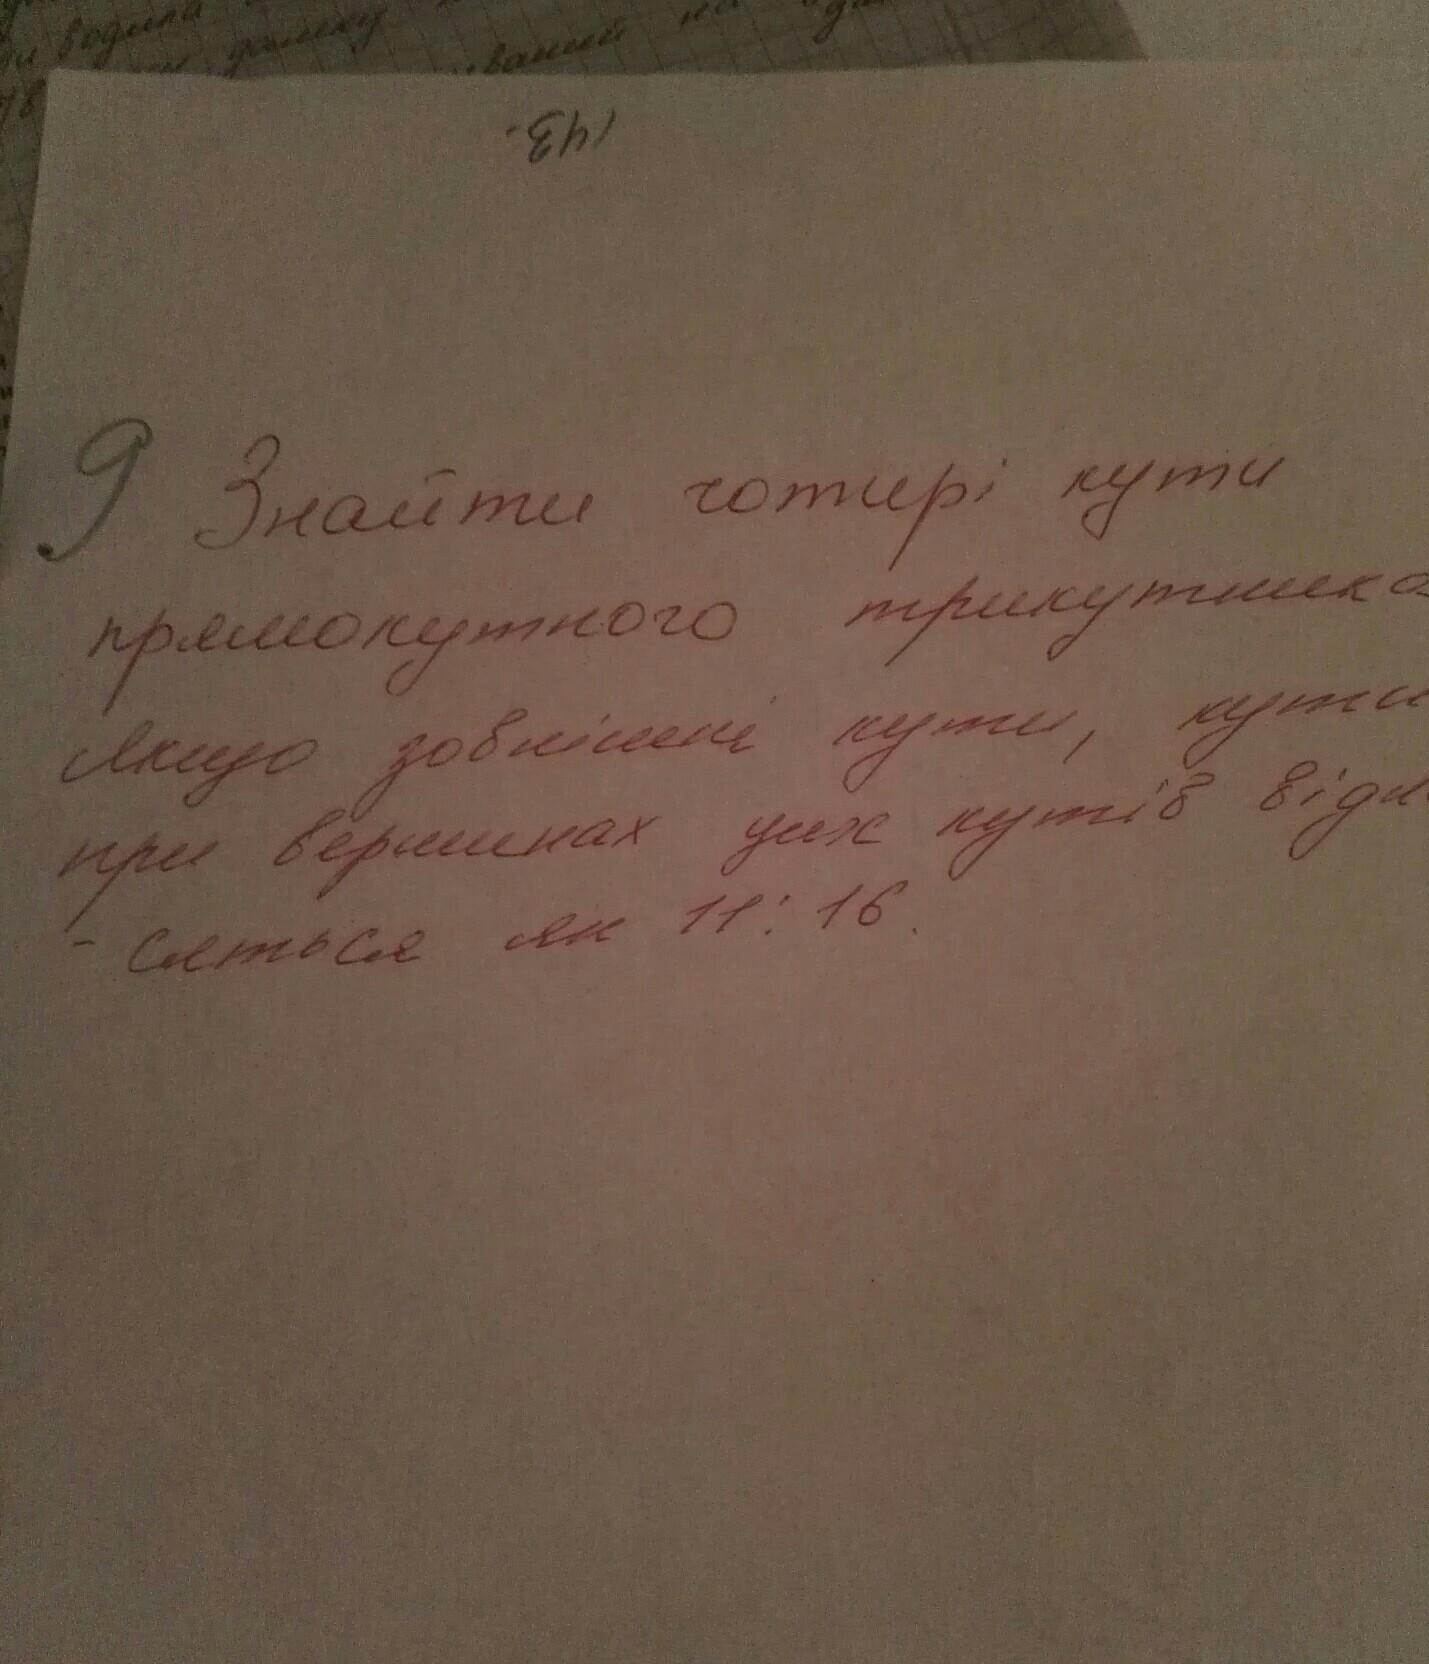 водила
ваний на
143.
9 Знайти чотирі кути
прямокутного трикутника
якщо зовнішні кути, кути
при вершинах цих кутів відн
- сяться як 11:16.